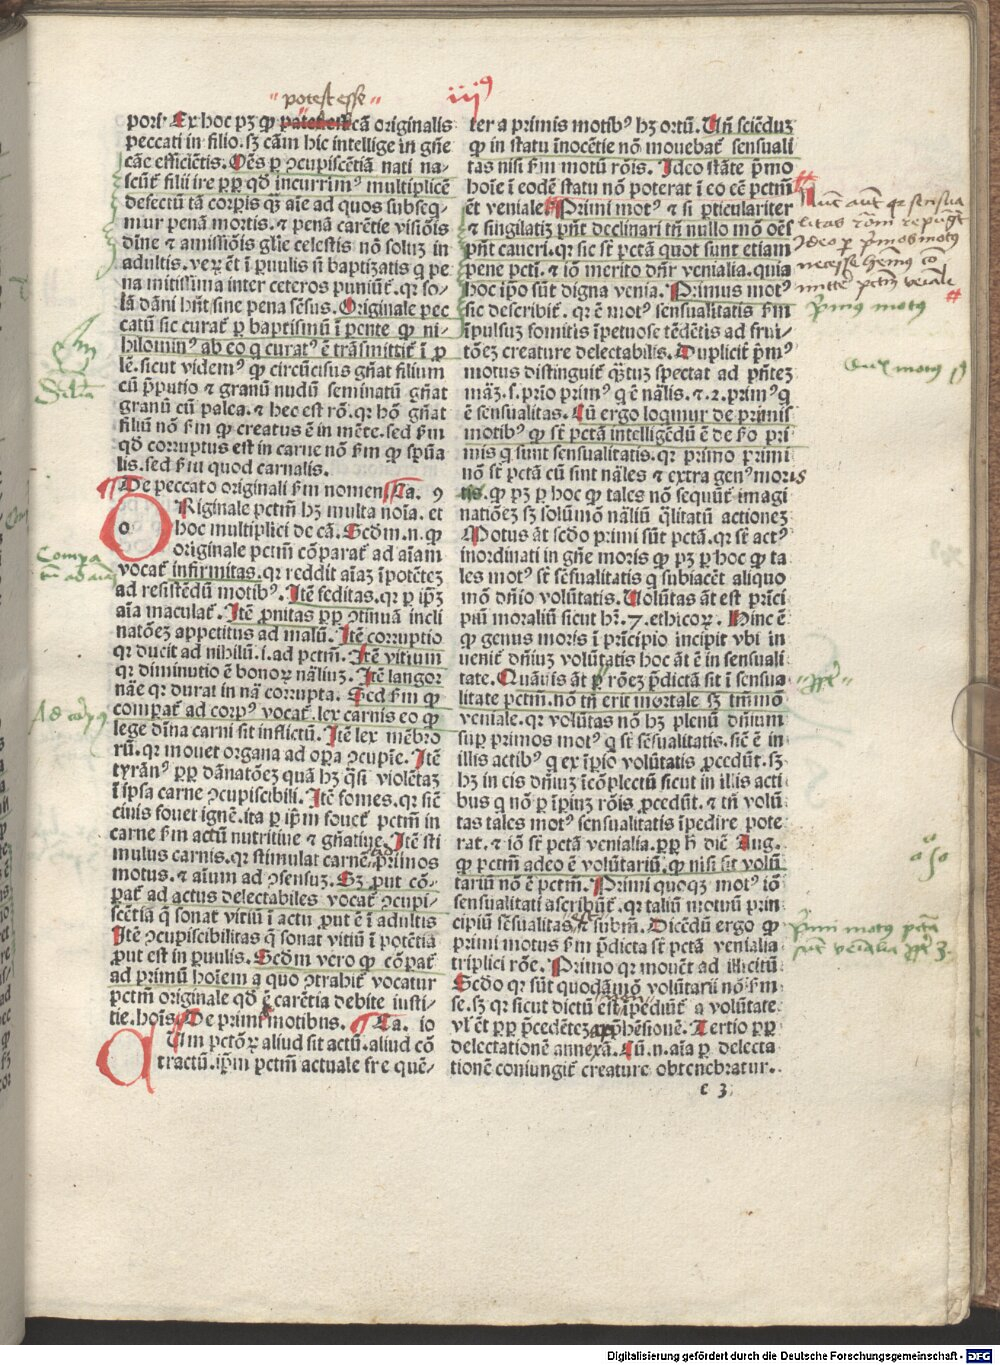 "potest esse"
iij⁹
pori. Ex hoc pꝫ ꝙ cā originalis
peccati in filio. sꝫ cām hic intellige in gñe
cāe efficiētis. Oēs ꝑ ꝯcupiscētiā nati na-
scūt̄ filii ire ꝓꝑ qḋ incurrimꝰ multiplicē
defectū tā corpis ꝙ̄ aīe ad quos subseq̄-
mur penā mortis. ⁊ penā carētie visiōis
diīne ⁊ amissiōis glīe celestis nō soluꝫ in
adultis. veꝝ ēt ī ꝑuulis nō baptizatis q̄ pe
na mitissima inter ceteros puniūt̄. qꝛ so-
lā dāni hn̄t sine pena sēsus. Originale pec
catū sic curat̄ ꝑ baptismū ī pente ꝙ ni-
hilominꝰ ab eo q̇ curat̄ ē trāsmittit̄ ī ꝓ
lē. sicut videmꝰ ꝙ circūcisus gn̄at filium
cū p̄putio ⁊ granū nudū seminatū gn̄at
granū cū palea. ⁊ hec est rō. qꝛ hō gn̄at
filiū nō ẜm ꝙ creatus ē in mēte. sed ẜm
qḋ corruptus est in carne nō ẜm ꝙ spūa
lis. sed ẜm quod carnalis.
De peccato originali ẜm nomen. Ca. 9
ORiginale pctm̄ hꝫ multa noīa. et
hoc multiplici de cā. Scḋm. n. ꝙ
originale pctm̄ cōparat̄ ad aīam
vocat̄ infirmitas. qꝛ reddit aīaꝫ īpotēteꝫ
ad resistēdū motibꝰ. Itē feditas. qꝛ ꝑ ip̄ꝫ
aīa maculat̄. Itē ꝓnitas ꝓꝑ ꝯtinuā incli
natōeꝫ appetitus ad malū. Itē corruptio
qꝛ ducit ad nihilū. i. ad pctm̄. Itē vitium
qꝛ diminutio ē bonoꝝ nāliuꝫ. Itē langor
nāe qꝛ durat in nā corrupta. Sed ẜm ꝙ
comparat̄ ad corpꝰ vocat̄. lex carnis eo ꝙ
lege dīna carni sit inflictū. Itē lex mēbro
rū. qꝛ mouet organa ad oꝑa ꝯcupīe. Itē
tyrānꝰ ꝓꝑ dānatōeꝫ quā hꝫ q̄si violētaꝫ
ī ipsa carne ꝯcupiscibili. Itē fomes. qꝛ siē
cinis fouet ignē. ita ꝑ ip̄m fouet̄ pctm̄ in
carne ẜm actū nutritiue ⁊ gn̄atiue. Itē sti
mulus carnis. qꝛ stimulat carnē ad primos
motus. ⁊ aīum ad ꝯsensuꝫ. Sꝫ ꝓut cō-
parat̄ ad actus delectabiles vocat̄ ꝯcupi-
scētia q̄ sonat vitiū ī actu ꝓut ē ī adultis
Itē ꝯcupiscibilitas q̄ sonat vitiū ī potētia
ꝓut est in ꝑuulis. Scḋm vero ꝙ cōparat̄
ad primū hoīem a quo ꝯtrahit̄ vocatur
pctm̄ originale qḋ ē carētia debite iusti-
tie. hoīs. De primis motibus. Ca. io
CUm pctōꝝ aliud sit actū. aliud cō
tractū. ip̄m pctm̄ actuale fre quē-
ter a primis motibꝰ hꝫ ortū. Un̄ sciēduꝫ
ꝙ in statu īnocētie nō mouebat̄ sensuali
tas nisi ẜm motū rōis. Ideo stāte p̄mo
hoīe ī eodē statu nō poterat ī eo eē pctm̄
ēt veniale. Primi motꝰ ⁊ si ꝑticulariter
⁊ singilatiꝫ pn̄t declinari tn̄ nullo mō oēs
pn̄t caueri. qꝛ sic sē pctā quot sunt etiam
pene pcti. ⁊ iō merito dn̄r venialia. quia
hoc ip̄o sūt digna venia. Primus motꝰ
sic describit̄. qꝛ ē motꝰ sensualitatis ẜm
īpulsuꝫ fomitis īpetuose tēdētis ad frui-
tōeꝫ creature delectabilis. Duplicit̄ p̄mꝰ
motus distinguit̄ q̄tuꝫ spectat ad p̄n̄teꝫ
māꝫ. s. p̄rio primꝰ q̇ ē nālis. ⁊. 2. primꝰ q̇
ē sensualitas. Cū ergo loqmur de primis
motibꝰ ꝙ sē pctā intelligēdū ē de ẜo pri
mis q̇ sunt sensualitatis. qꝛ primo primi
nō sē pctā cū sint nāles ⁊ extra genꝰ moris
ꝙ pꝫ ꝑ hoc ꝙ tales nō sequūt̄ imagi
natiōeꝫ sꝫ solūmō nāliū q̄litatū actioneꝫ
Motus āt scḋo primi sūt pctā. qꝛ sē actꝰ
inordinati in gn̄e moris ꝙ pꝫ ꝑ hoc ꝙ ta
les motꝰ sē sēsualitatis q̄ subiacēt aliquo
mō dn̄io volūtatis. Uolūtas āt est prīci
piū moraliū sicut hr̄. 7. ethicoꝝ. Hinc ē
ꝙ genus moris ī prīcipio incipit vbi in
uenit̄ dn̄iuꝫ volūtatis hoc āt ē in sensuali
tate. Quāuis āt ꝑ rōeꝫ p̄dictā sit ī sensua
litate pctm̄. nō tn̄ erit mortale sꝫ tm̄mō
veniale. qꝛ volūtas nō hꝫ plenū dn̄ium
suꝑ primos motꝰ q̇ sē sēsualitatis. siē ē in
illis actibꝰ q̇ ex īpr̄io volūtatis ꝓcedūt. sꝫ
hꝫ in eis dn̄iuꝫ īcōplectū sicut in illis acti
bus q̇ nō ꝑ īpriuꝫ rōis ꝓcedūt. ⁊ tn̄ volū
tas tales motꝰ sensualitatis īpedire pote
rat. ⁊ iō sē pctā venialia. ꝓꝑ ħ diē Aug.
ꝙ pctm̄ adeo ē volūtariū. ꝙ nisi sit volū
tariū nō ē pctm̄. Primi quoqꝫ motꝰ iō
sensualitati ascribūt̄. qꝛ taliū motuū prin
cipiū sēsualitas ē ⁊ subm̄. Dicēdū ergo ꝙ
primi motus ẜm p̄dicta sē pctā venialia
triplici rōe. Primo qꝛ mouēt ad illicitū
Scḋo qꝛ sūt quodāmō volūtarii nō ẜm
se. sꝫ qꝛ sicut dictū est īpediūt̄ a volūtate
vl̄ ēt ꝓꝑ p̄cedēteꝫ app̄hēsionē. Tertio ꝓꝑ
delectationē annexā. Cū. n. aīa ꝑ delecta
tionē coniungit̄ creature obtenebratur.
c 3
Nunc aut̄ qꝛ sensua
litas rōni repugt̄
Ideo ꝑ pm̄os motꝰ
necesse hēmꝰ cō
mitte pctm̄ veniāle
Prīmꝰ motus
Duplx motus
Primi motus pctā
sūt venialia ꝓpt̄ 3
Compa
tū ad aīaꝫ
Ad corpꝰ
Digitalisierung gefördert durch die Deutsche Forschungsgemeinschaft - DFG